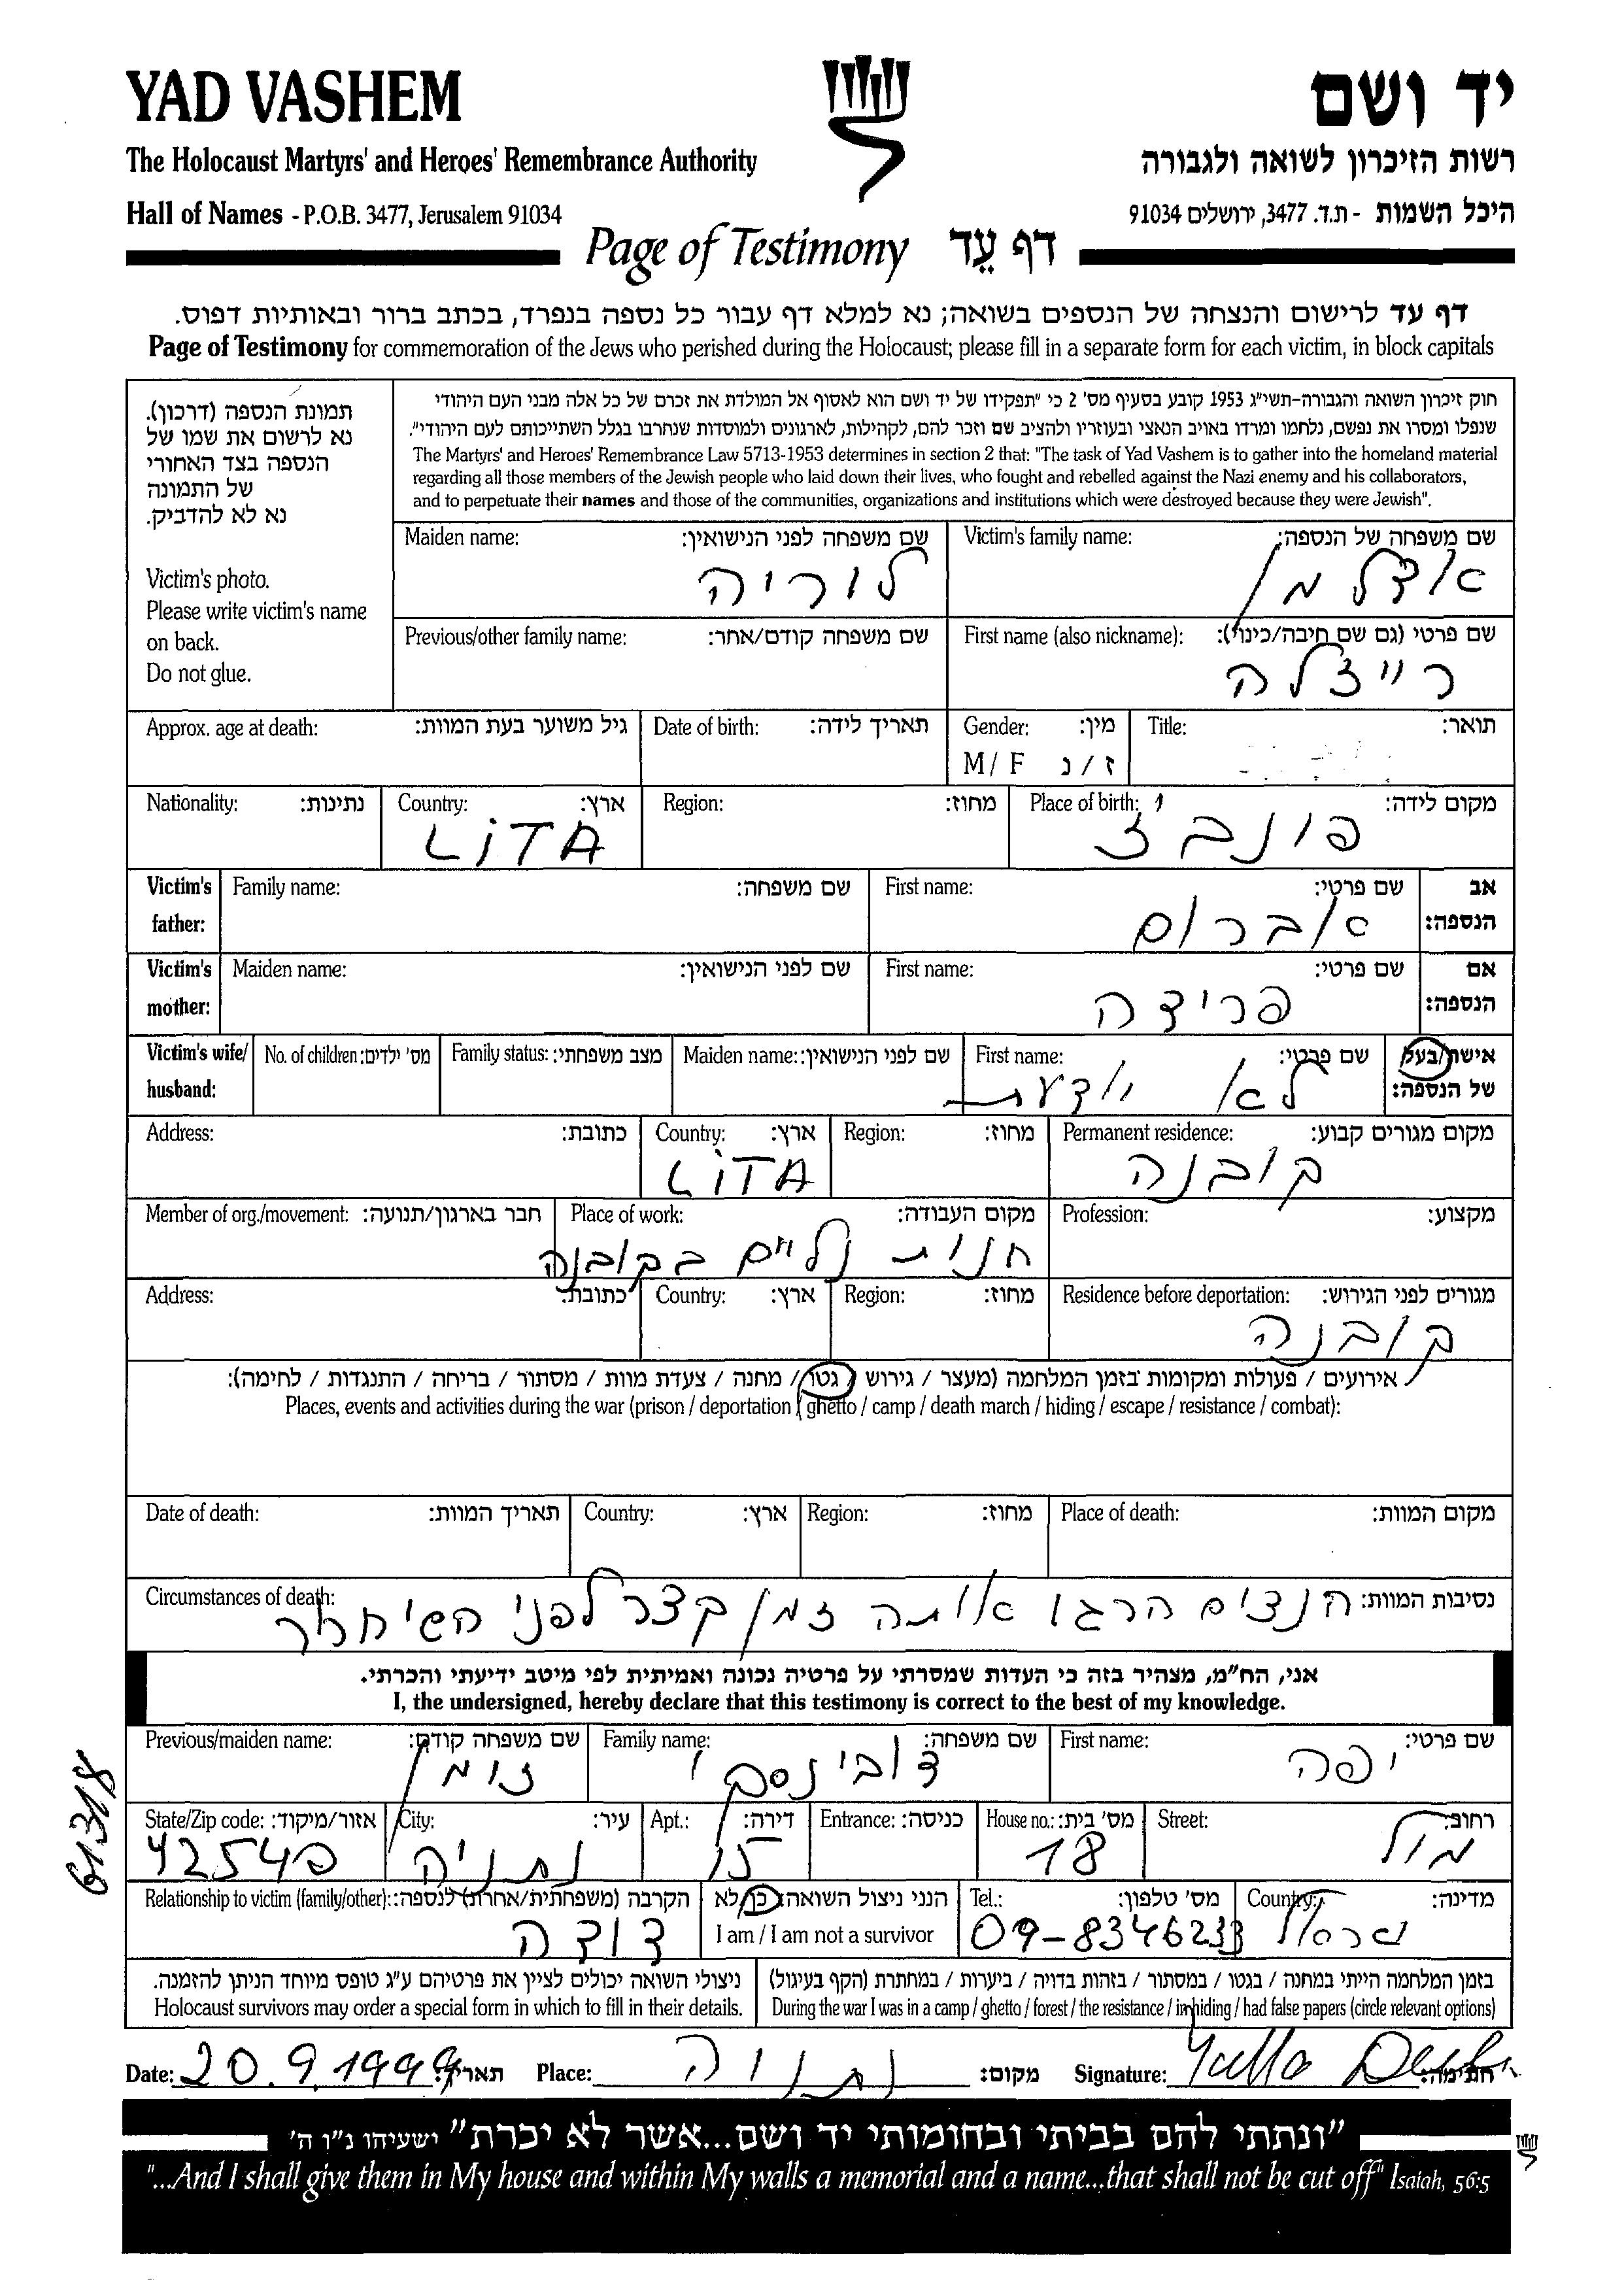 YAD VASHEM
יד ושם
The Holocaust Martyrs' and Heroes' Remembrance Authority
רשות הזיכרון לשואה ולגבורה
Hall of Names - P.O.B. 3477, Jerusalem 91034
היכל השמות - ת.ד. 3477, ירושלים 91034
Page of Testimony דף עֵד
דף עד לרישום והנצחה של הנספים בשואה; נא למלא דף עבור כל נספה בנפרד, בכתב ברור ובאותיות דפוס.
Page of Testimony for commemoration of the Jews who perished during the Holocaust; please fill in a separate form for each victim, in block capitals
תמונת הנספה (דרכון).
נא לרשום את שמו של
הנספה בצד האחורי
של התמונה
נא לא להדביק.
Victim's photo.
Please write victim's name
on back.
Do not glue.
חוק זיכרון השואה והגבורה-תשי"ג 1953 קובע בסעיף מס' 2 כי "תפקידו של יד ושם הוא לאסוף אל המולדת את זכרם של כל אלה מבני העם היהודי
שנפלו ומסרו את נפשם, נלחמו ומרדו באויב הנאצי ובעוזריו ולהציב שם וזכר להם, לקהילות, לארגונים ולמוסדות שנחרבו בגלל השתייכותם לעם היהודי".
The Martyrs' and Heroes' Remembrance Law 5713-1953 determines in section 2 that: "The task of Yad Vashem is to gather into the homeland material
regarding all those members of the Jewish people who laid down their lives, who fought and rebelled against the Nazi enemy and his collaborators,
and to perpetuate their names and those of the communities, organizations and institutions which were destroyed because they were Jewish".
Victim's family name: שם משפחה של הנספה:
אדלמן
Maiden name: שם משפחה לפני הנישואין:
לוריה
First name (also nickname): שם פרטי (גם שם חיבה/כינוי):
רייזלה
Previous/other family name: שם משפחה קודם/אחר:
Title: תואר:
Gender: מין:
M / F ז / נ
Date of birth: תאריך לידה:
Approx. age at death: גיל משוער בעת המוות:
Place of birth: מקום לידה:
פונבז'
Region: מחוז:
Country: ארץ:
LiTA
Nationality: נתינות:
Victim's father: אב הנספה:
First name: שם פרטי:
אברום
Family name: שם משפחה:
Victim's mother: אם הנספה:
First name: שם פרטי:
פרידה
Maiden name: שם לפני הנישואין:
Victim's wife/ husband: אישה/בעל של הנספה:
First name: שם פרטי:
לא יודעת
Maiden name: שם לפני הנישואין:
Family status: מצב משפחתי:
No. of children: מס' ילדים:
Permanent residence: מקום מגורים קבוע:
קובנה
Region: מחוז:
Country: ארץ:
LiTA
Address: כתובת:
Profession: מקצוע:
Place of work: מקום העבודה:
חנות נליים בקובנה
Member of org./movement: חבר בארגון/תנועה:
Residence before deportation: מגורים לפני הגירוש:
קובנה
Region: מחוז:
Country: ארץ:
Address: כתובת:
אירועים / פעולות ומקומות בזמן המלחמה (מעצר / גירוש / גטו / מחנה / צעדת מוות / מסתור / בריחה / התנגדות / לחימה):
Places, events and activities during the war (prison / deportation / ghetto / camp / death march / hiding / escape / resistance / combat):
Place of death: מקום המוות:
Region: מחוז:
Country: ארץ:
Date of death: תאריך המוות:
Circumstances of death: נסיבות המוות:
הנצים הרגו אותה זמן קצר לפני השיחרור
אני, הח"מ, מצהיר בזה כי העדות שמסרתי על פרטיה נכונה ואמיתית לפי מיטב ידיעתי והכרתי.
I, the undersigned, hereby declare that this testimony is correct to the best of my knowledge.
First name: שם פרטי:
יפה
Family name: שם משפחה:
דובינסקי
Previous/maiden name: שם משפחה קודם:
זומן
Street: רחוב:
House no.: מס' בית:
18
Entrance: כניסה:
Apt.: דירה:
15
City: עיר:
נתניה
State/Zip code: אזור/מיקוד:
42540
61318
Country: מדינה:
ישראל
Tel.: מס' טלפון:
09-8346233
הנני ניצול השואה: כן/לא
I am / I am not a survivor
Relationship to victim (family/other): הקרבה (משפחתית/אחרת) לנספה:
דודה
בזמן המלחמה הייתי במחנה / בגטו / במסתור / בזהות בדויה / ביערות / במחתרת (הקף בעיגול)
During the war I was in a camp / ghetto / forest / the resistance / in hiding / had false papers (circle relevant options)
ניצולי השואה יכולים לציין את פרטיהם ע"ג טופס מיוחד הניתן להזמנה.
Holocaust survivors may order a special form in which to fill in their details.
Date: 20.9.1999 תאריך: Place: נתניה מקום: Signature: חתימה:
"ונתתי להם בביתי ובחומותי יד ושם...אשר לא יכרת" ישעיהו נ"ו ה'
"...And I shall give them in My house and within My walls a memorial and a name...that shall not be cut off" Isaiah, 56:5